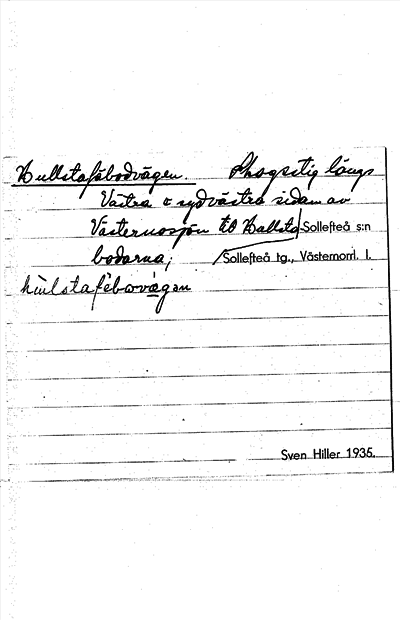 Hullstafäbodvägen. Skogsstig längs
Västra o sydvästra sidan av
Västernosjön till Hallsta- Sollefteå s:n
bodarna; Sollefteå tg., Västernorrl. l.
hùlstafèborvä̀gan
Sven Hiller 1935.